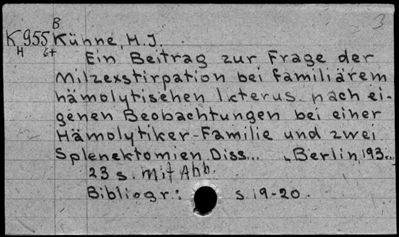 B 3
K 955 Kühne, M. J.
H 6+
Ein Beitrag zur Frage der
Milzexstirpation bei familiärem
hämolytischen Ikterus nach ei-
genen Beobachtungen bei einer
Hämolytiker-Familie und zwei
Splenektomien, Diss... Berlin, 193..,
23 s. mit Abb.
Bibliogr.: s. 19-20.